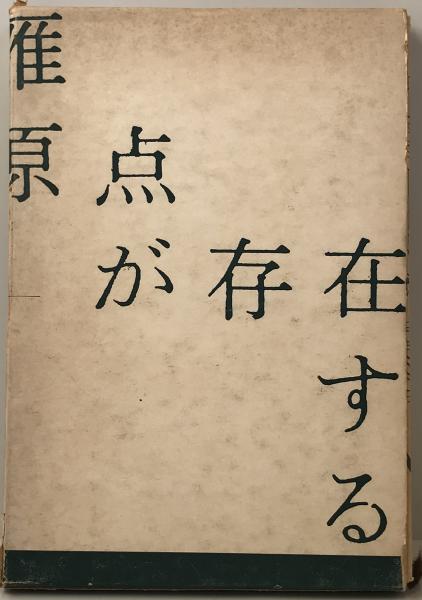 雁
原
点が
存
在する